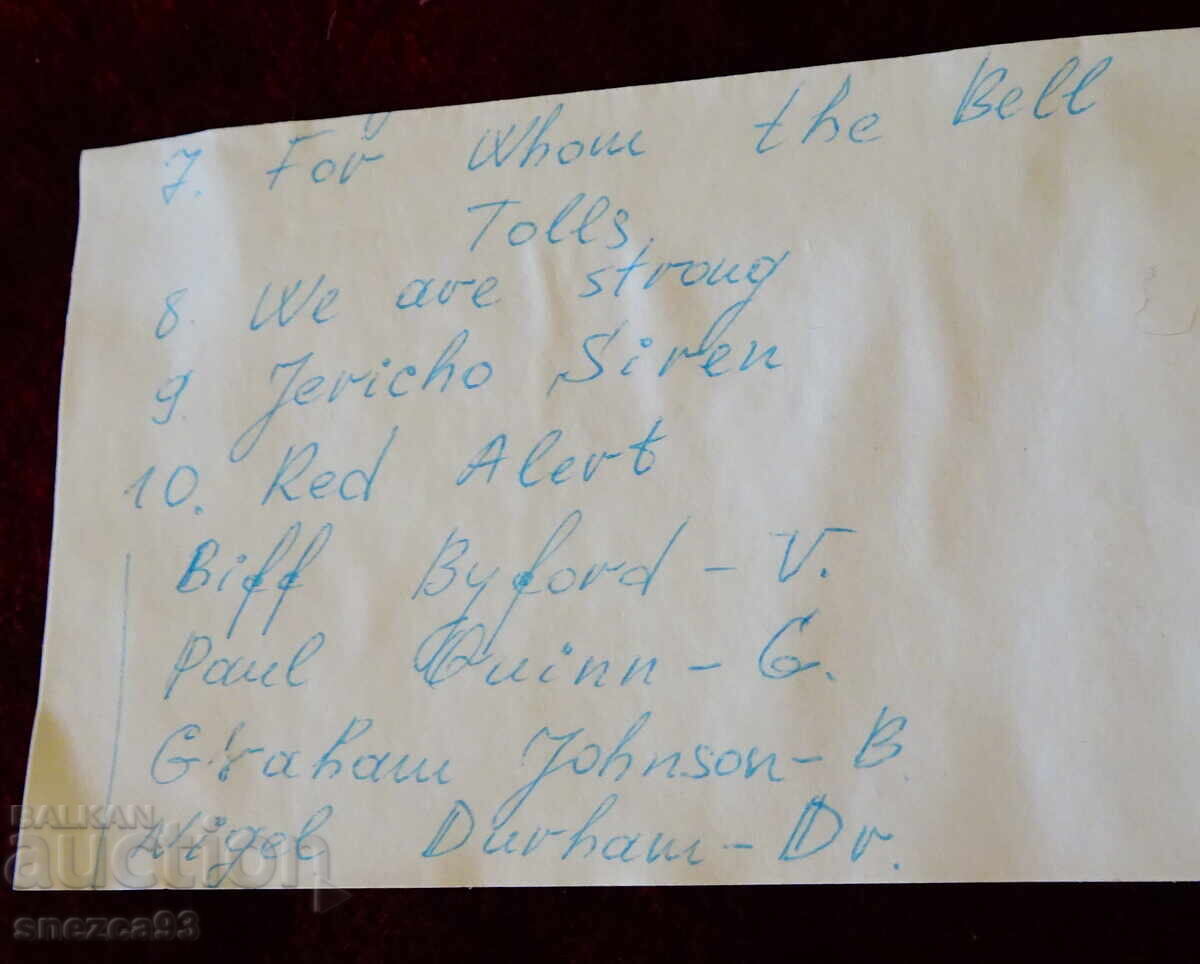 7. For Whom the Bell
Tolls
8. We are strong
9. Jericho Siren
10. Red Alert
Biff Byford - V.
Paul Quinn - G.
Graham Johnson - B.
Nigel Durham - Dr.
BALKAN
auction
snezca93